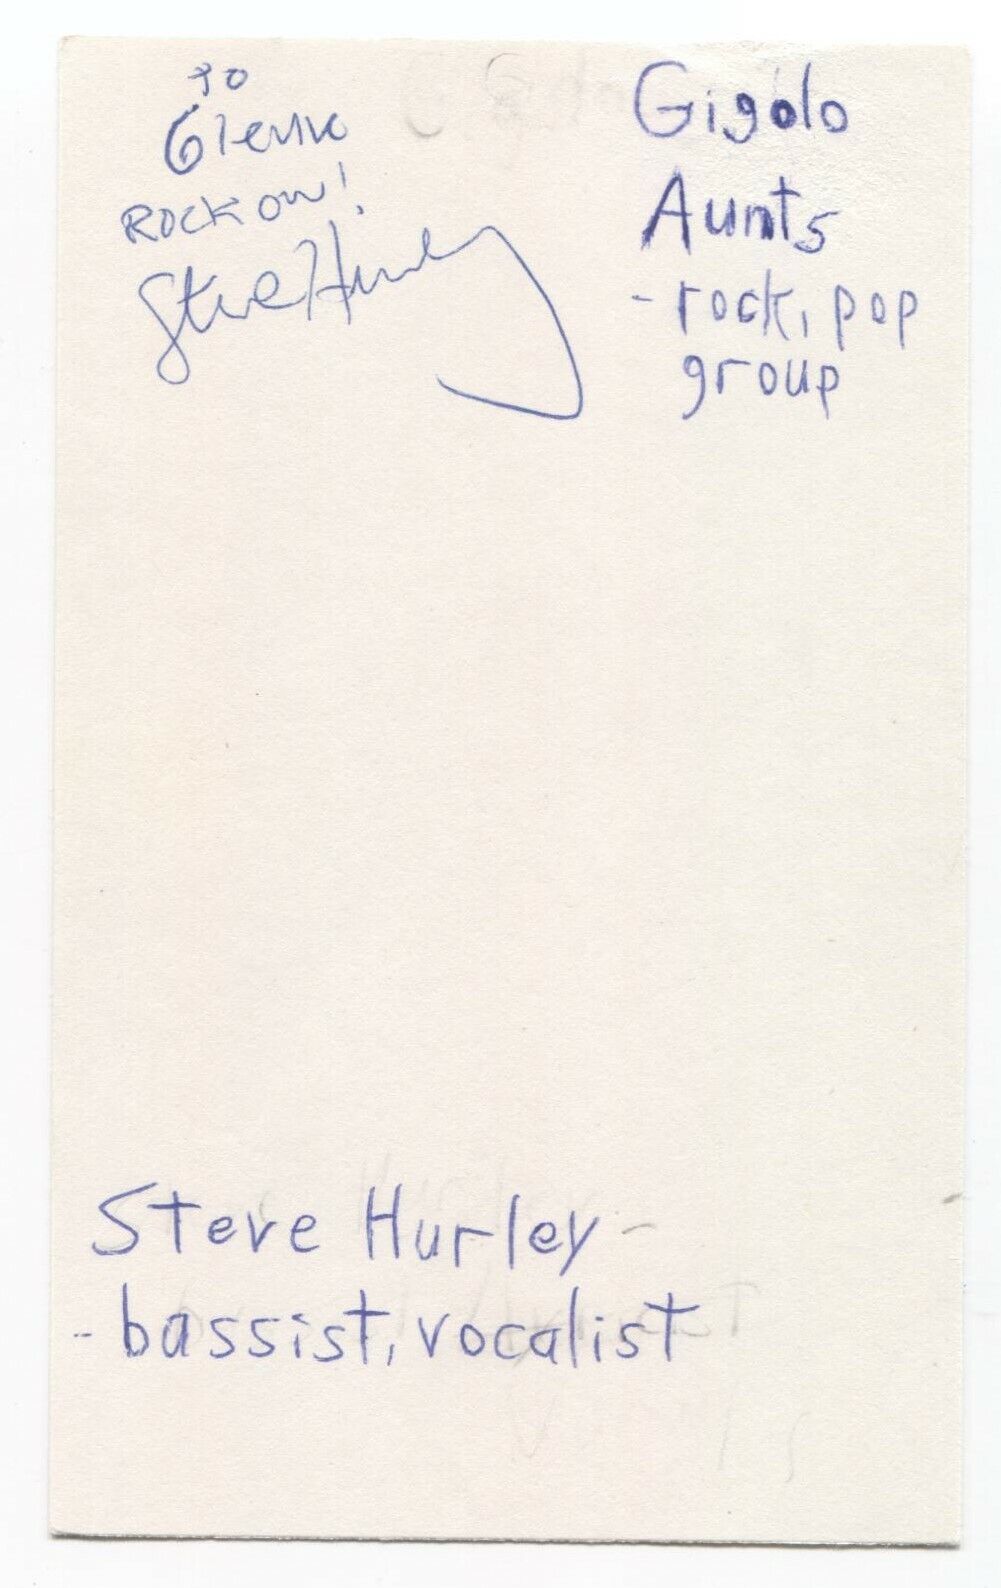 TO
Glenn
ROCK ON!
Steve Hurley
Gigolo
Aunts
- rock, pop
group
Steve Hurley -
- bassist, vocalist